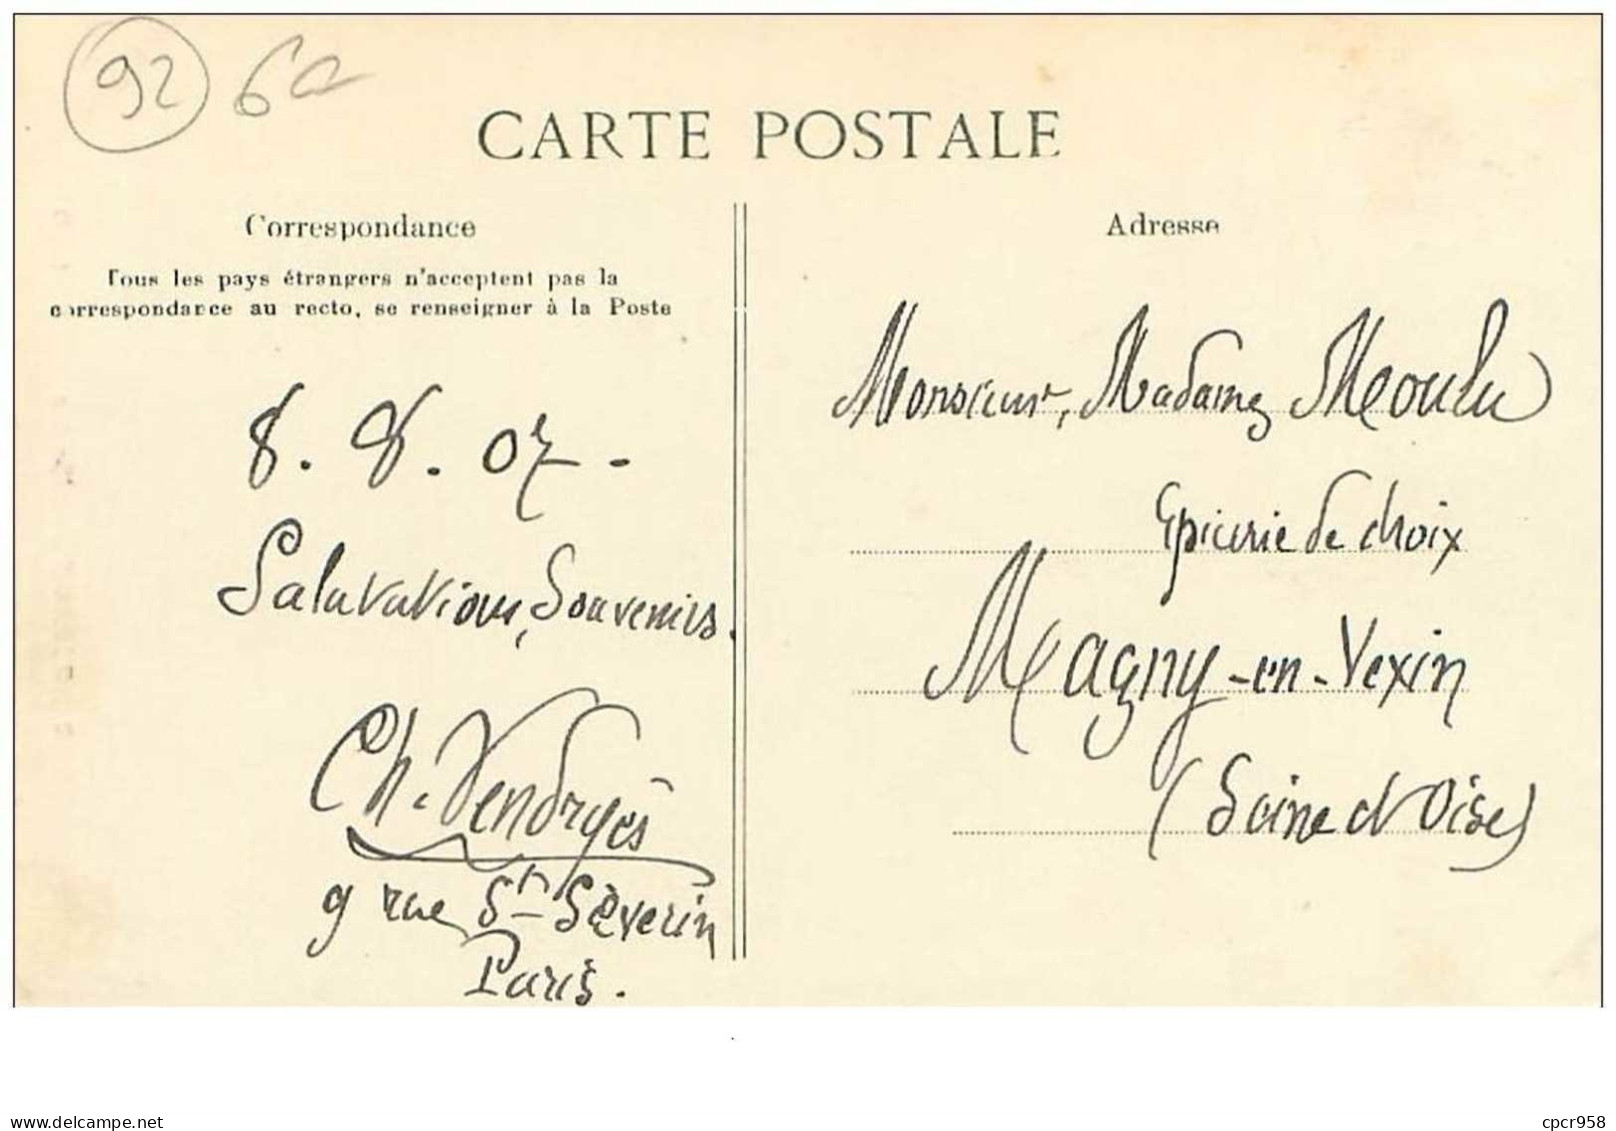 92 6a
CARTE POSTALE
Correspondance
Tous les pays étrangers n'acceptent pas la
correspondance au recto, se renseigner à la Poste
8. 8. 07 -
Salutations, Souvenirs.
Ch. Vendryès
9 rue St-Séverin
Paris.
Adresse
Monsieur, Madame
Epicerie de choix
Magny-en-Vexin
(Seine et Oise)
delcampe.net
cpcr958